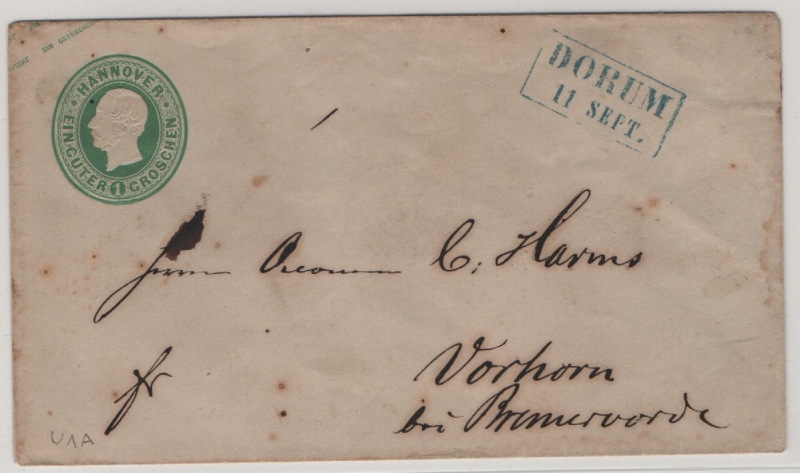 HANNOVER
EIN GUTER 1 GROSCHEN
DORUM
11 SEPT.
Herrn Oeconom C. Harms
fr
Vorhorn
bei Bremervörde
U1A